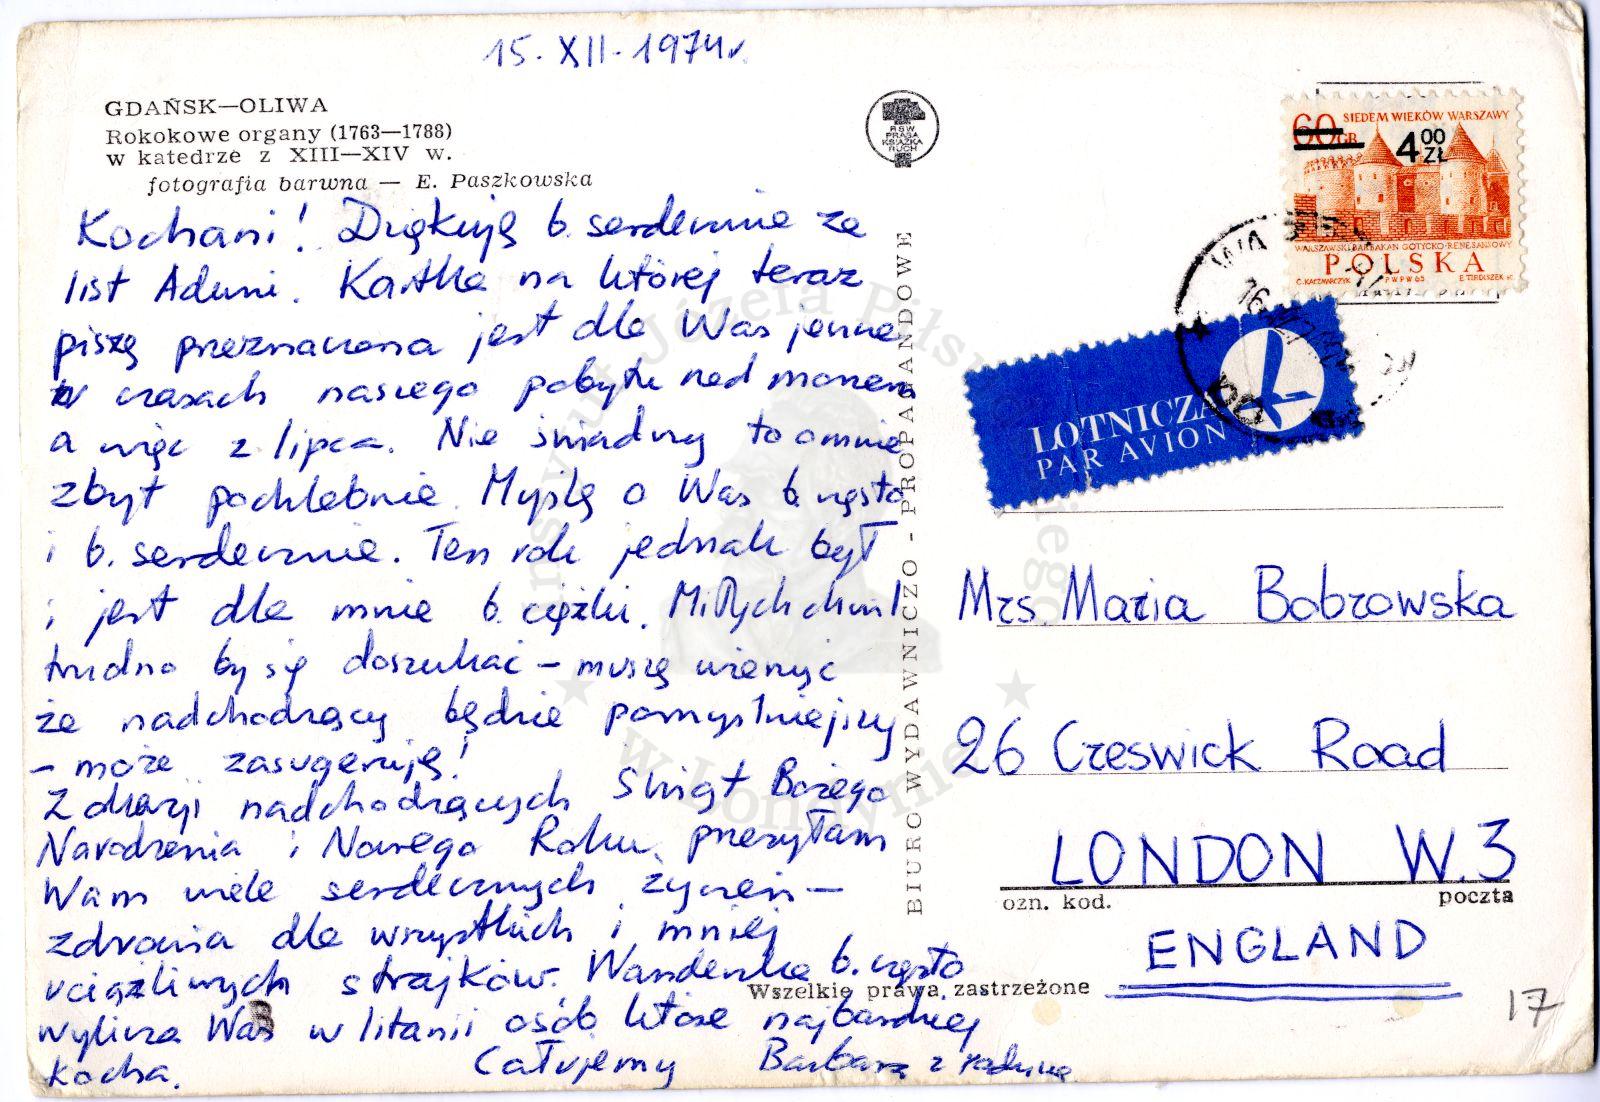 15. XII. 1974r.
GDAŃSK—OLIWA
Rokokowe organy (1763—1788)
w katedrze z XIII—XIV w.
fotografia barwna — E. Paszkowska
Kochani! Dziękuję b. serdecznie za
list Aduni. Kartka na której teraz
piszę przeznaczona jest dla Was jeszcze
w czasach naszego pobytu nad morzem
a więc z lipca. Nie świadczy to o mnie
zbyt pochlebnie. Myślę o Was b. często
i b. serdecznie. Ten rok jednak był
i jest dla mnie b. ciężki. Miłych chwil
trudno by się doszukać – muszę wierzyć
że nadchodzący będzie pomyślniejszy
– może zasugeruję!
Z okazji nadchodzących Świąt Bożego
Narodzenia i Nowego Roku, przesyłam
Wam wiele serdecznych życzeń –
zdrowia dla wszystkich i mniej
uciążliwych strajków. Wandeczka b. często
wylicza Was w litanii osób które najbardziej
kocha.
Całujemy Barbara z rodziną
RSW
PRASA
KSIĄŻKA
RUCH
BIURO WYDAWNICZO - PROPAGANDOWE
60 GR SIEDEM WIEKÓW WARSZAWY
4 00 ZŁ
WARSZAWSKI BARBAKAN GOTYCKO-RENESANSOWY
POLSKA
C. KACZMARCZYK PWPW 65 E. TIRDISZEK sc.
LOTNICZA
PAR AVION
Mrs. Maria Bobrowska
26 Creswick Road
LONDON W.3
ozn. kod. poczta
ENGLAND
Wszelkie prawa zastrzeżone
17
Instytut Józefa Piłsudskiego
w Londynie